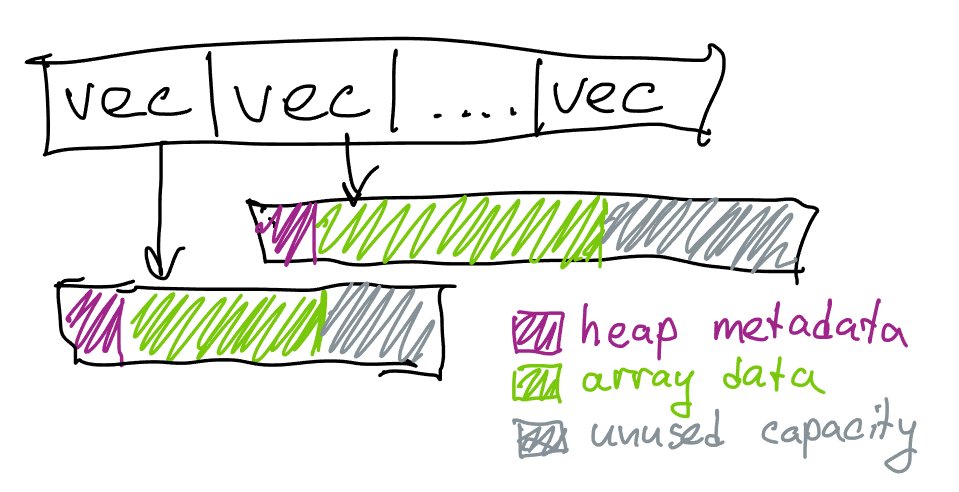 vec vec .... vec
heap metadata
array data
unused capacity